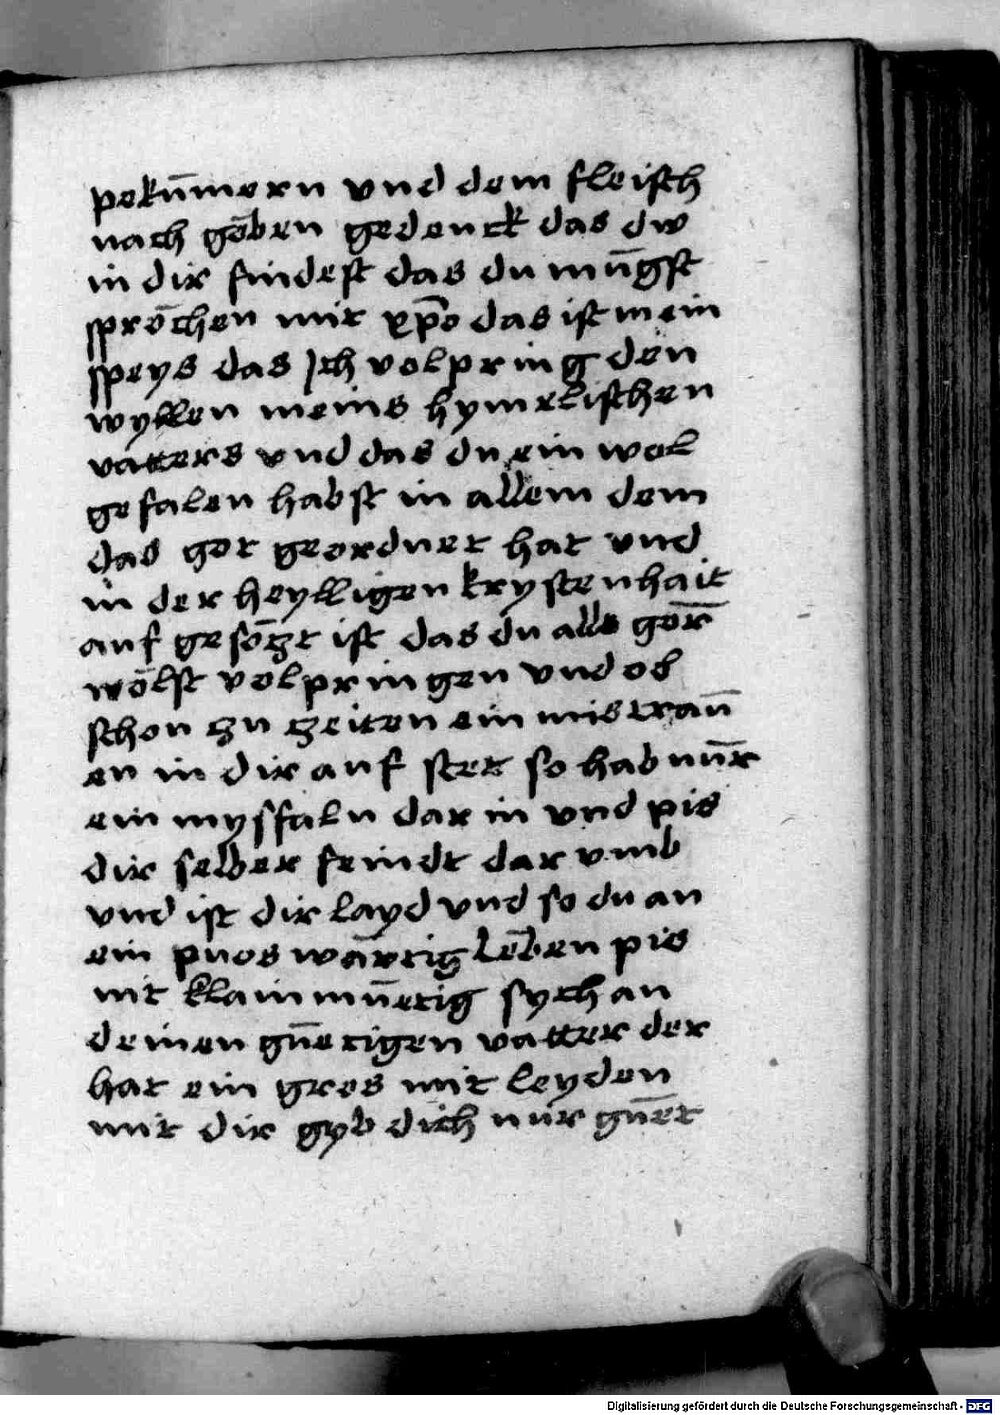 pekūmern vnd dem fleisch
nach gōben gedenck das dw
in dir findest das du mūgst
sprōchen mit xp̄o das ist mein
speys das Jch volpring den
wyllen meins hymelischen
vatters vnd das du ein wol
gefalen habst in allem dem
das got geordnet hat vnd
in der heylligen krystenhait
auf gesōgt ist das du alls gor̄
wōlst volpringen vnd ob
schon zu zeiten ein mistraū
en in dir auf stet so hab nūr
ein mysfaln dar in vnd pis
dir selber feindt dar vmb
vnd ist dir layd vnd so du an
ein puos wārtig lēben pis
nit klainmūetig sych an
deinen gūetigen vatter der
hat ein gros mit leyden
mit dir gyb dich nur gūet
Digitalisierung gefördert durch die Deutsche Forschungsgemeinschaft - DFG